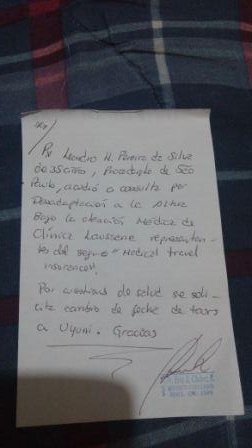 Leandro H. Pereira da Silva
de 35 años, Procedente de São
Paulo, acudió a consulta por
Desadaptación a la Altura
Bajo la atención Médica de
Clínica Laussane representan-
tes del seguro "Medical travel
insurances".
Por cuestiones de salud se soli-
cita cambio de fecha de tours
a Uyuni. Gracias